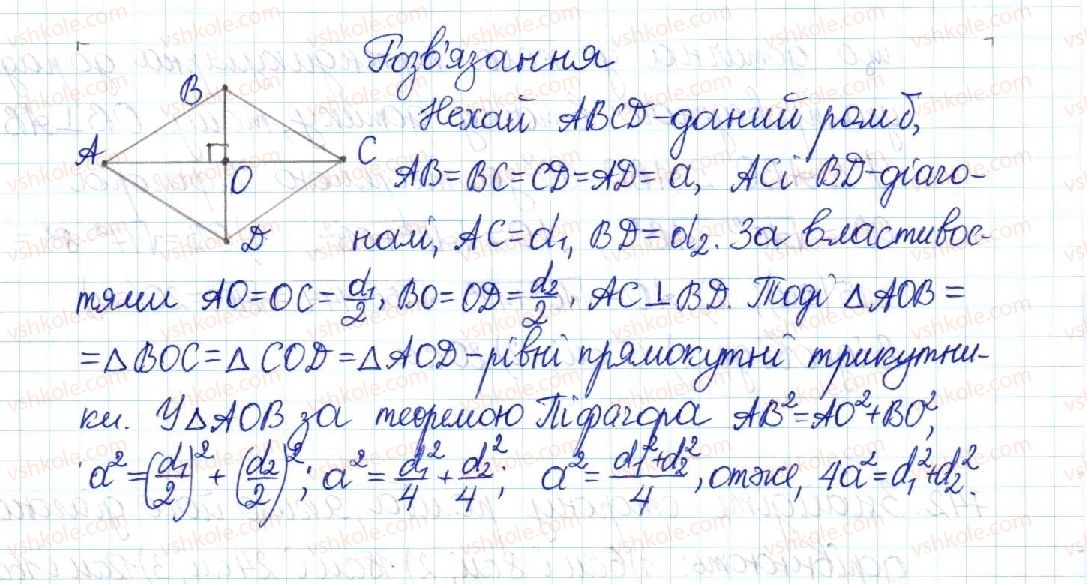 Розв'язання
Нехай ABCD-даний ромб,
AB=BC=CD=AD=a, AC і BD-діаго-
налі, AC=d₁, BD=d₂. За властивос-
тями AO=OC=d₁/2, BO=OD=d₂/2, AC⊥BD. Тоді △AOB=
=△BOC=△COD=△AOD-рівні прямокутні трикутни-
ки. У △AOB за теоремою Піфагора AB²=AO²+BO²,
a²=(d₁/2)²+(d₂/2)²; a²=d₁²/4+d₂²/4; a²=(d₁²+d₂²)/4, отже, 4a²=d₁²+d₂².
B
A
C
O
D
vshkole.com